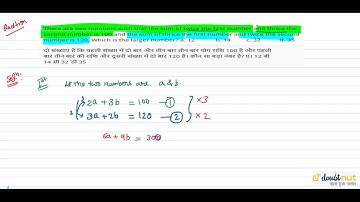 Question
There are two numbers such that the sum of twice the first number and thrice the
second number is 100 and the sum of thrice the first number and twice the second
number is 120. Which is the larger number? a. 12 b. 14 c. 32 d. 35
दो संख्याएं हैं कि पहली संख्या में दो बार और तीन बार तीन बार योग राशि 100 है और पहली
बार तीन बार की राशि और दूसरी संख्या में दो बार 120 है। कौन सा बड़ा नंबर है? ए। 12 बी
14 सी 32 डी 35
Solⁿ.
Let the two numbers are a & b.
2a + 3b = 100 — ① ×3
3a + 2b = 120 — ② ×2
6a + 9b = 300
doubtnut